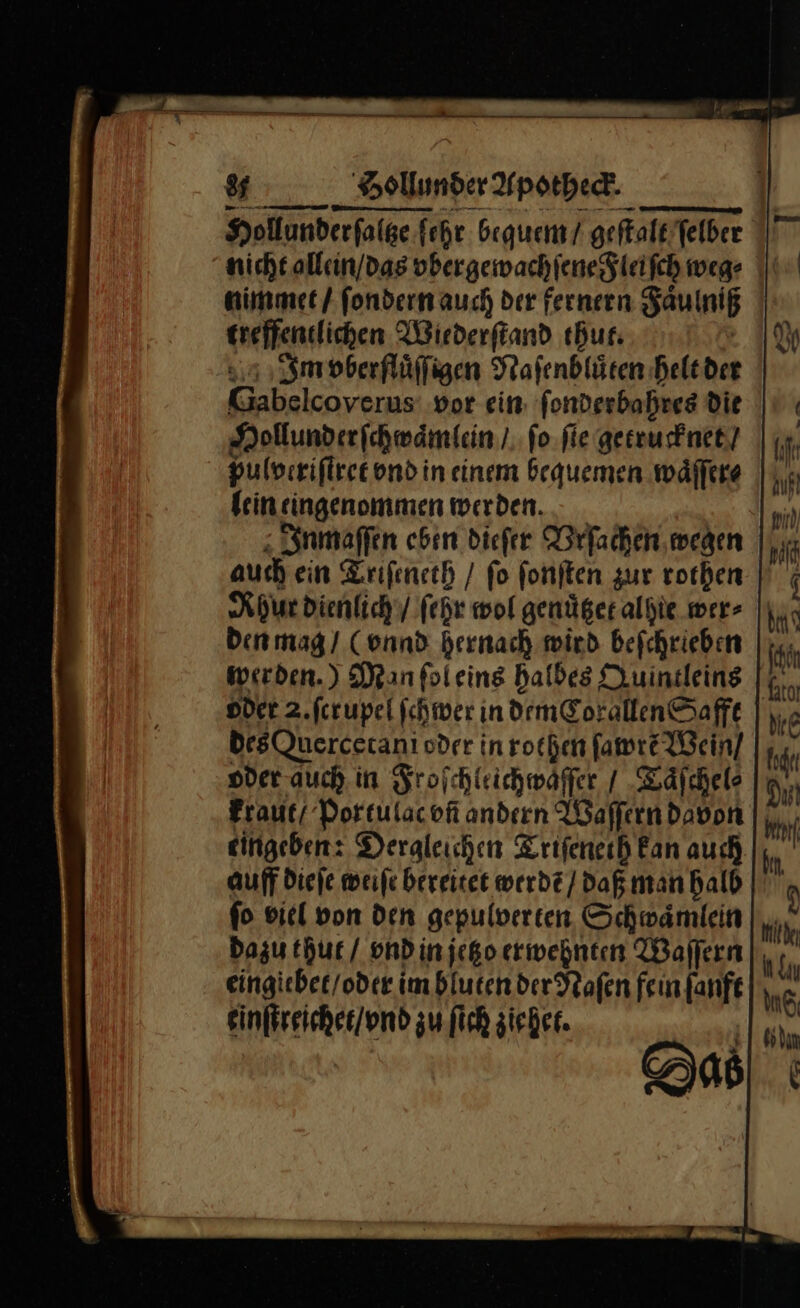 Hollunder Apotheck.
Hollunderſaltze ſehr bequem / geſtalt ſelber
nicht allein/das vbergewachſene Fleiſch weg⸗
nimmet / ſondern auch der fernern Faͤulniß
treffentlichen Wiederſtand thut.
Im vberfluͤſſigen Naſenbluͤten helt der
Gabelcoverus vor ein ſonderbahres die
Hollunderſchwaͤmlein / ſo ſie getrucknet /
pulveriſiret vnd in einem bequemen waͤſſer⸗
lein eingenommen werden.
Inmaſſen eben dieſer Vrſachen wegen
auch ein Triſeneth / ſo ſonſten zur rothen
Rhur dienlich / ſehr wol genuͤtzet alhie wer⸗
den mag / ( vnnd hernach wird beſchrieben
werden.) Man ſol eins halbes Quintleins
oder 2. ſcrupel ſchwer in dem Corallen Safft
des Quercetani oder in rothen ſawrẽ Wein/
oder auch in Froſchleichwaſſer / Taͤſchel⸗
kraut/ Portulac vñ andern Waſſern davon
eingeben: Dergleichen Triſeneth kan auch
auff dieſe weiſe bereitet werdẽ / daß man halb
ſo viel von den gepulverten Schwaͤmlein
dazu thut / vnd in jetzo erwehnten Waſſern
eingiebet/oder im bluten der Naſen fein ſanft
einſtreichet/vnd zu ſich ziehet.
Das